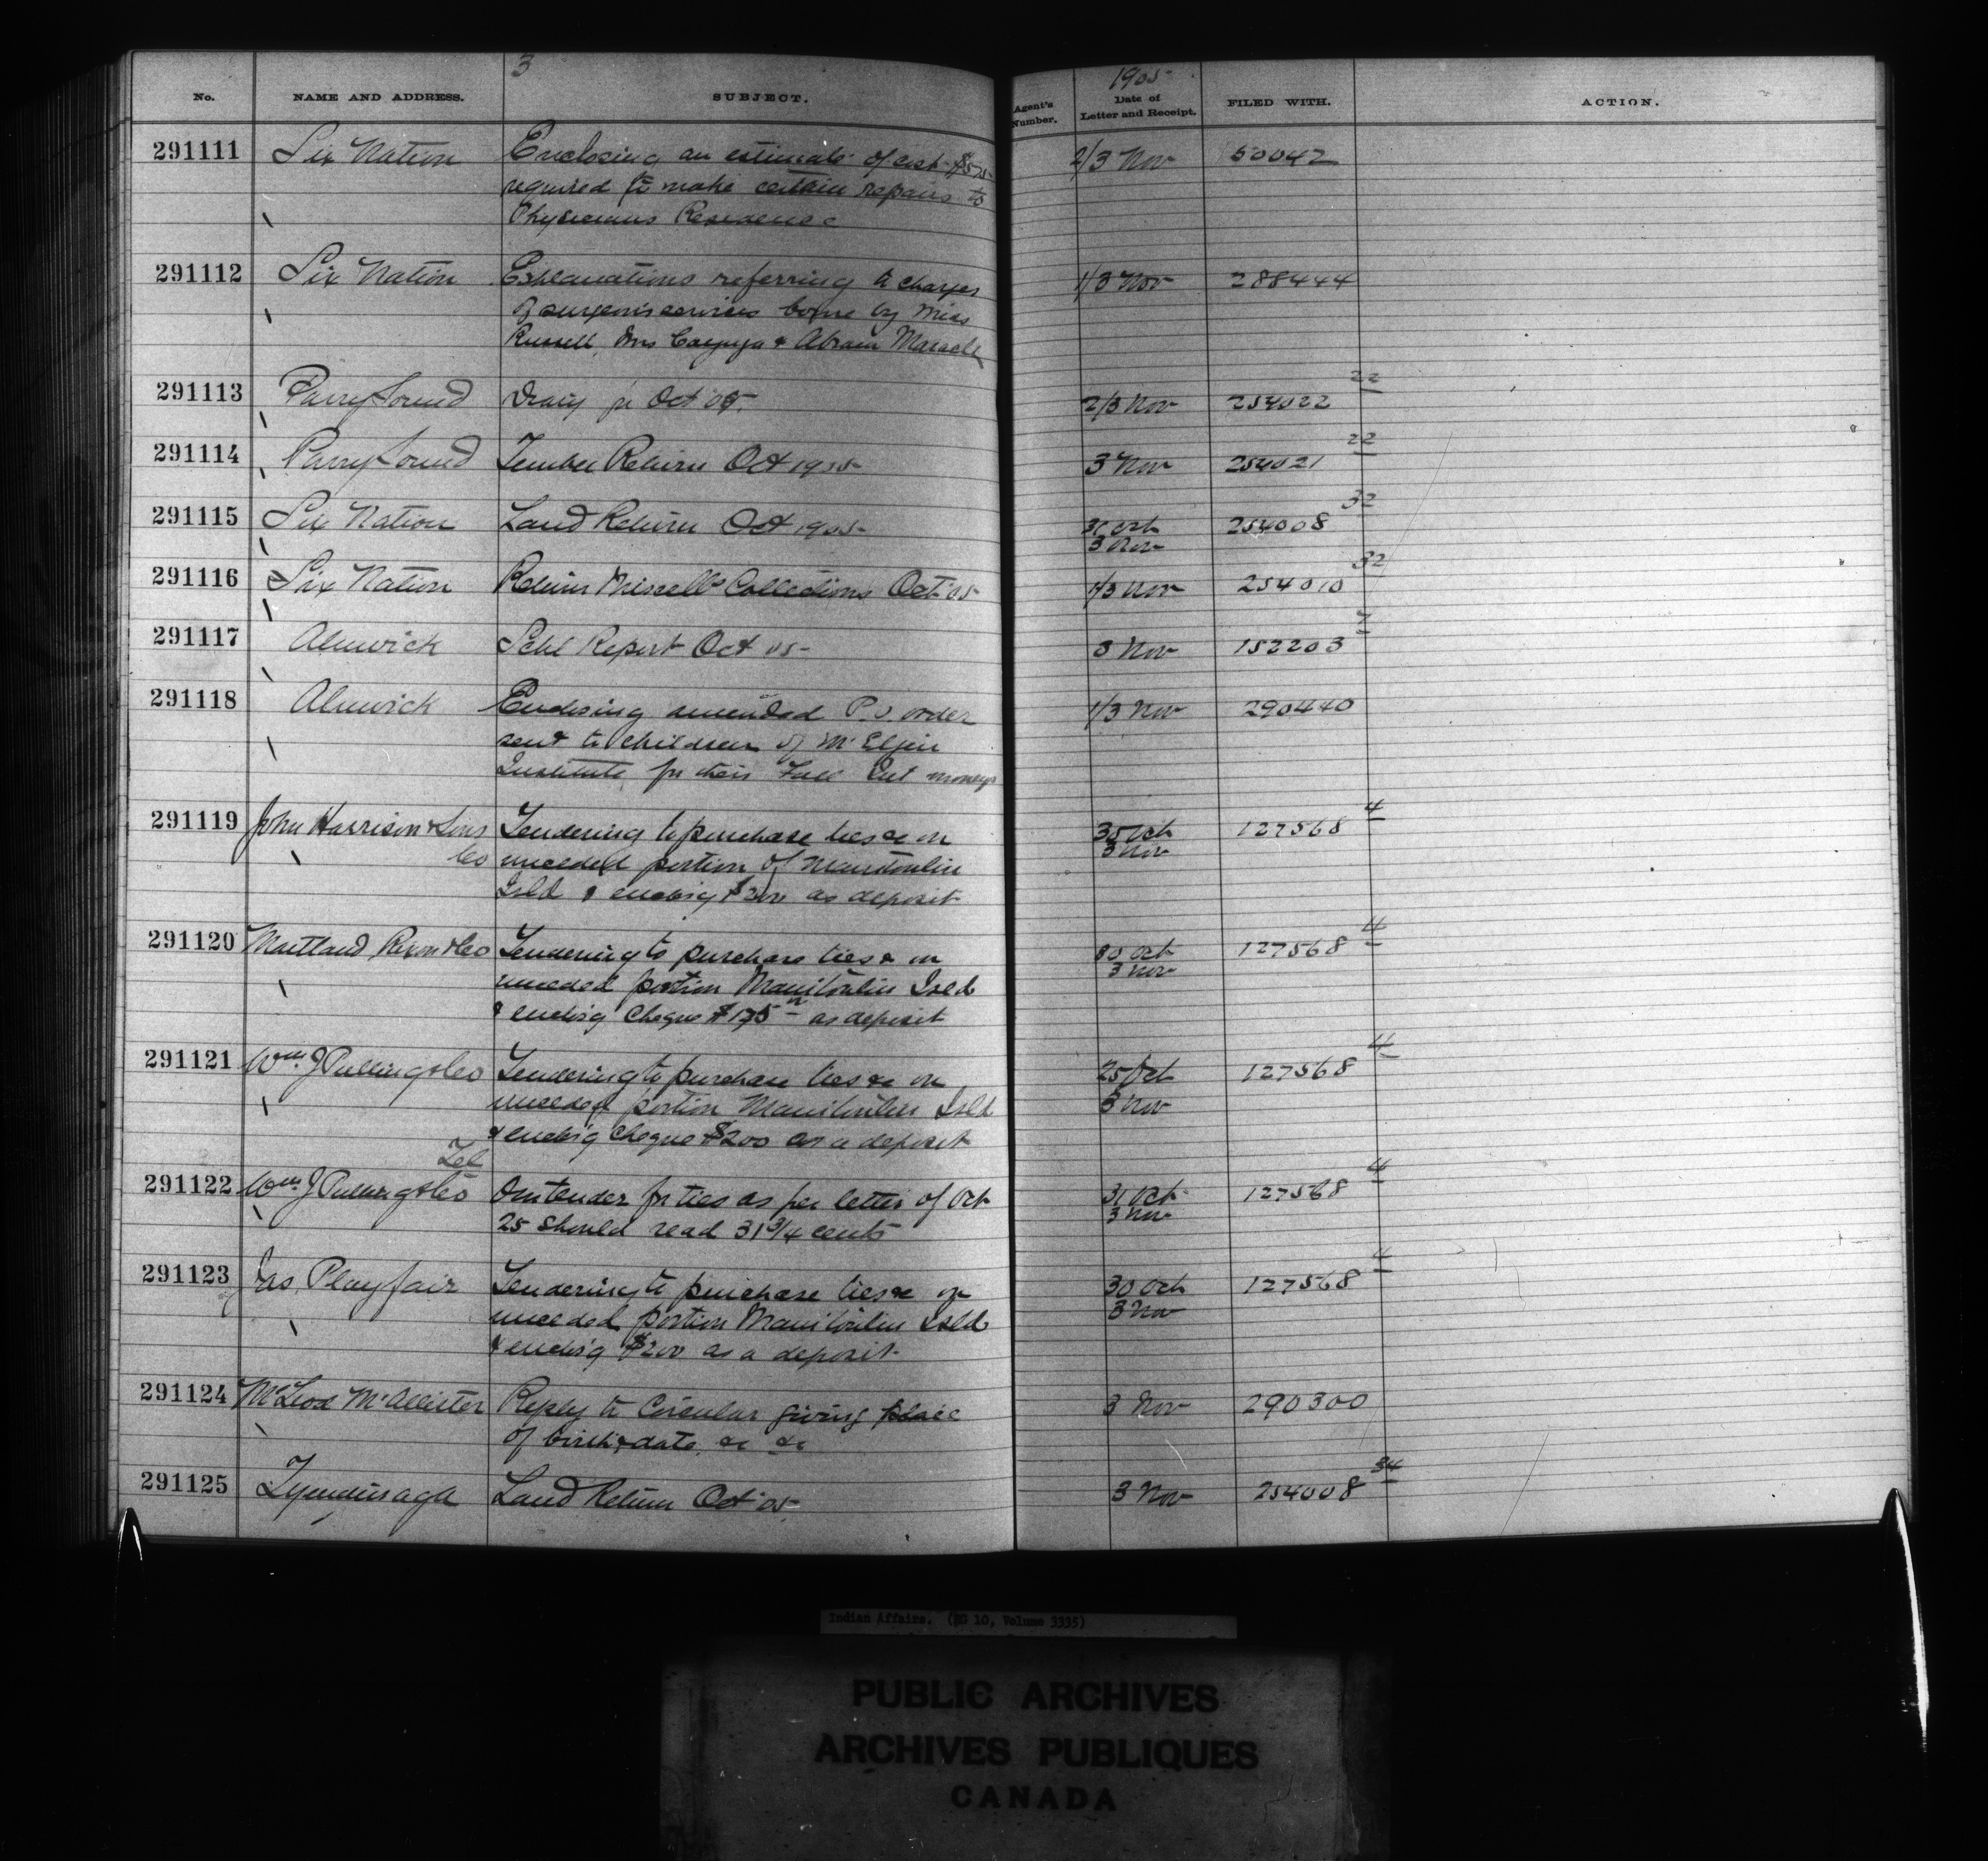 3
1905
No. NAME AND ADDRESS. SUBJECT. Agent's Number. Date of Letter and Receipt. FILED WITH. ACTION.
291111 Six Nation Enclosing an estimate of cost 2/3 Nov 50042
required to make certain repairs to
Physicians Residence
291112 Six Nation Explanations referring to charges 1/3 Nov 288444
of surgeon's services borne by Miss
Russell, Mrs Cayuga & Abram Maracle
291113 Parry Sound Diary for Oct '05 2/3 Nov 254022 22
291114 Parry Sound Timber Return Oct 1905 3 Nov 254021 22
291115 Six Nation Land Return Oct 1905 31 Oct 254008 32
3 Nov
291116 Six Nation Return Miscells Collections Oct '05 1/3 Nov 254010 32
291117 Alnwick Schl Report Oct 05 3 Nov 152203 7
291118 Alnwick Enclosing amended P.O. order 1/3 Nov 290440
sent to children of Mt Elgin
Institute for their Fall Int moneys
291119 John Harrison & Sons Tendering to purchase ties &c on 30 Oct 127568 4
Co unceded portion of Manitoulin 3 Nov
Isld & enclosg $200 as deposit
291120 Maitland Rixon & Co Tendering to purchase ties & on 30 Oct 127568 4
unceded portion Manitoulin Isld 3 Nov
& enclosg Cheque as deposit
291121 Wm. J Pulling & Co Tendering to purchase ties &c on 25 Oct 127568 4
unceded portion Manitoulin Isld 3 Nov
& enclos'g Cheque $200 as a deposit
Tel
291122 Wm. J Pulling & Co Our tender for ties as per letter of Oct 31 Oct 127568 4
25 Should read 31 3/4 cents 3 Nov
291123 Jas. Playfair Tendering to purchase ties &c on 30 Oct 127568 4
unceded portion Manitoulin Isld 3 Nov
& enclos'g $200 as a deposit
291124 McLeod McAllister Reply to Circular giving place 3 Nov 290300
of birth & date, &c &c
291125 Tyendinaga Land Return Oct '05 3 Nov 254008 34
Indian Affairs. (RG 10, Volume 3335)
PUBLIC ARCHIVES
ARCHIVES PUBLIQUES
CANADA